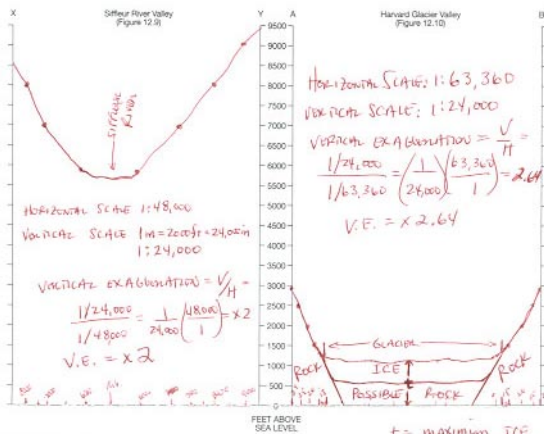 X Siffleur River Valley Y
(Figure 12.9)
A Harvard Glacier Valley B
(Figure 12.10)
9500
9000
8500
8000
7500
7000
6500
6000
5500
5000
4500
4000
3500
3000
2500
2000
1500
1000
500
0
FEET ABOVE
SEA LEVEL
SIFFLEUR
RIVER
HORIZONTAL SCALE 1:48,000
VERTICAL SCALE 1in=2000ft=24,000in
1:24,000
VERTICAL EXAGGERATION = V/H =
1/24,000 / 1/48,000 = 1/24,000 (48,000/1) = x2
V.E. = x 2
HORIZONTAL SCALE: 1:63,360
VERTICAL SCALE: 1:24,000
VERTICAL EXAGGERATION = V/H =
1/24,000 / 1/63,360 = (1/24,000)(63,360/1) = 2.64
V.E. = x 2.64
GLACIER
ROCK ICE ROCK
POSSIBLE ROCK
t = MAXIMUM ICE